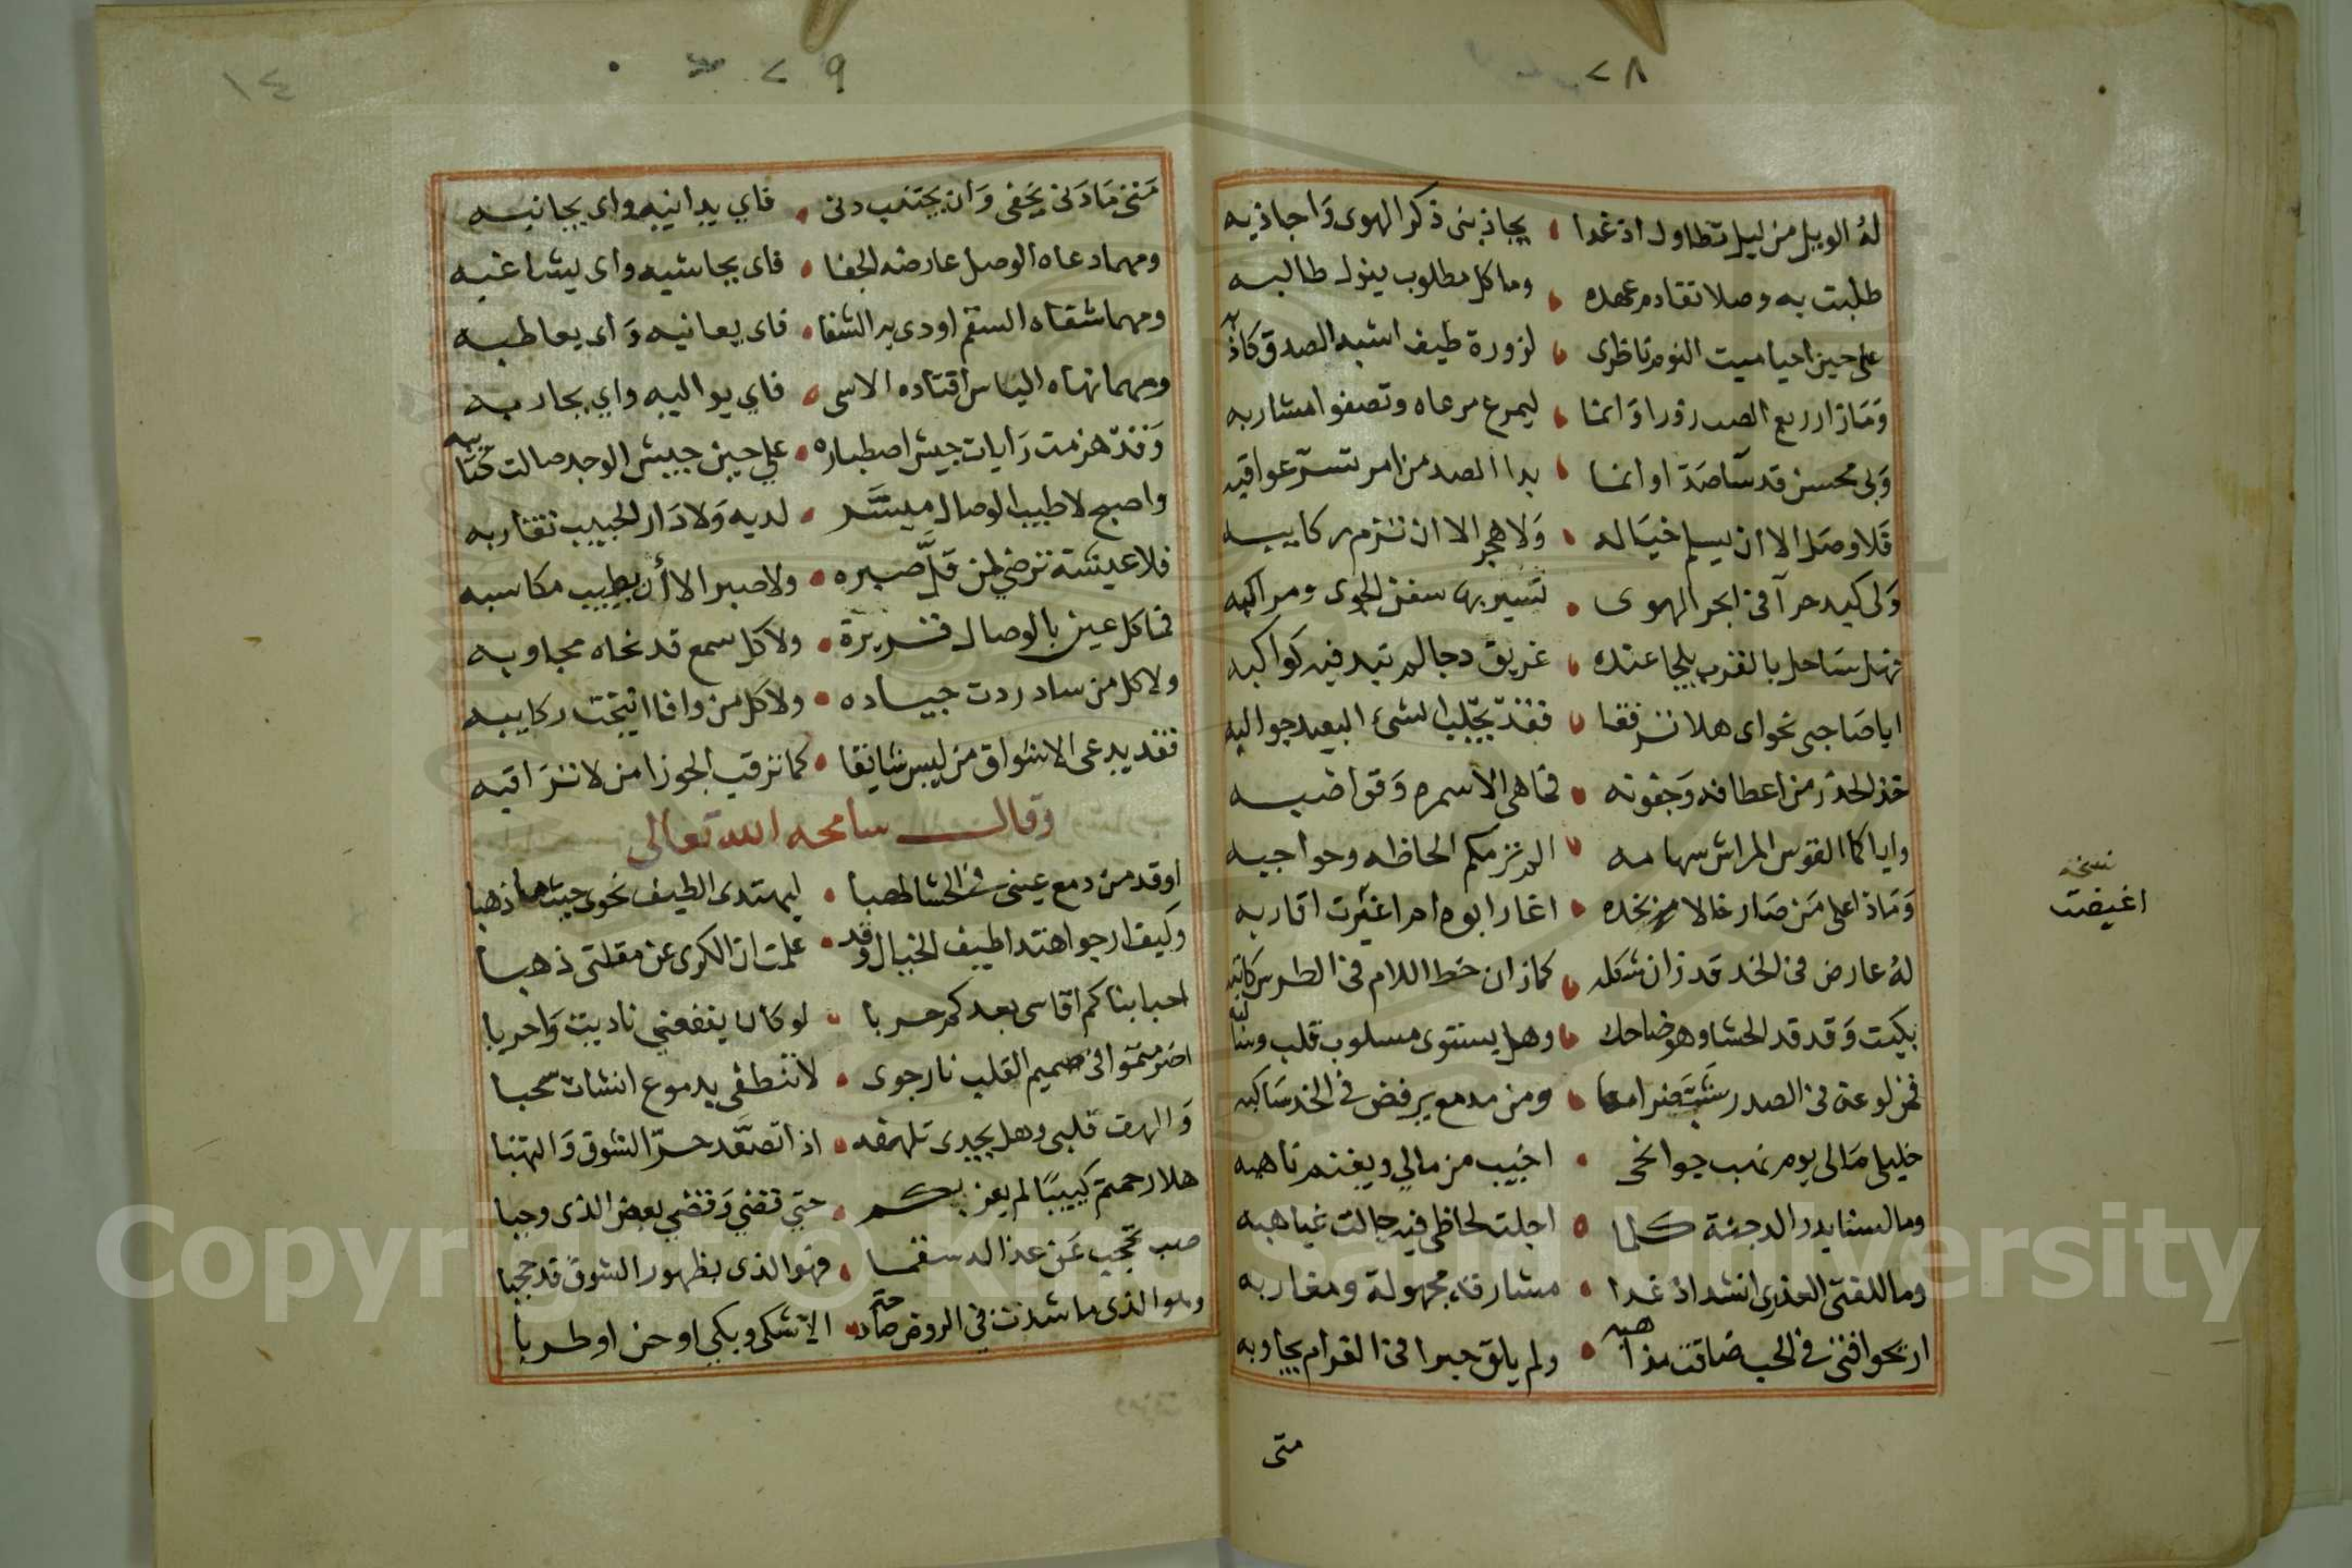 ٢٨
له الويل من ليل تطاول اذ غدا • يجاذبنى ذكر الهوى وَاجاذبه
طلبت به وصلا تقادم عهده • وما كل مطلوب ينول طالبه
على حين احيا ميت النوم ناظرى • لزورة طيف اشبه الصدق كاذبه
وَمَا زار ربع الصب زورا وَانما • ليمرع مرعاه وتصفوا مشاربه
وَبى محسن قد سآ صَدّا وانما • بدا الصد من امر تسرّ عواقبه
فَلا وصَل الا ان يسلم خيَاله • وَلا هجر الا ان تزم ركايبه
وَلى كبد حرآ فى ابحر الهوى • تسير بها سفن الجوى ومراكبه
فهل سَاحل بالقرب يلجا عنده • غريق دجا لم تبد فيه كواكبه
ايا صَاحبى نحواى هلا ترفقا • فقد يجلب الشئ البعيد جوالبه
خذ الحذر من اعطافه وَجفونه • فما هى الا سمره وَقواضبه
واياكما القوس المراش سهامه • الم ترمكم الحاظه وحواجبه
وَمَاذا على مَن صَار خالا بخده • اغار ابوه ام اغيرت اقاربه
نسخه
اغيضت
لهُ عارض فى الخد قد زان شكله • كما زان خط اللام فى الطرس كاتبه
بكيت وَقد قد الحشا وهو ضاحك • وهل يستوى مسلوب قلب وسالبه
فمن لوعة فى الصدر شَبّت ضرامها • ومن مدمع يرفض فى الخد سَاكبه
خليلى مَالى يوم نهب جوانحى • اخيب من مالي ويغنم ناهبه
وما لسنا بدر الدجنة كلما • اجلت لحاظى فيه جالت غياهبه
وما للفتى العذرى انشد اذ غدا • مشارقه مجهولة ومغاربه
اريحوا فتى فى الحب ضاقت مذاهبه • ولم يلق حبرا فى الغرام يجاوبه
متى
٢٩
١٤
مَتى مَا دَنى يَخفى وَان يجتنب دنى • فاي يدانيه واى يجانبه
ومهما دعاه الوصل عارضه الجفا • فاى يحاشيه واى يشاغبه
ومهما شفاه السقم اودى به الشفا • فاى يعانيه وَاى يعاطبه
ومهما نهاه الياس اقتاده الاسى • فاي يواليه واي يحاربه
وَقد هزمت رَايات جيش اصطباره • علي حين جيش الوجد صالت كتايبه
واصبح لا طيب الوصال ميسَّر • لديه وَلا دَار الحبيب تقاربه
فلا عيشة ترضي لمن قلَّ صبره • ولا صبر الا أن يطيب مكاسبه
فما كل عين بالوصال قريرة • ولا كل سمع قد نحاه مجاوبه
ولا كل من ساد ردت جياده • ولا كل من وافا انيخت ركايبه
فقد يدعى الاشواق من ليس شايقا • كما ترقب الجوزا من لا تَراقبه
وقال سامحه الله تعالى
اوقد من دمع عينى فى الحشا لهبا • ليهتدى الطيف نحوى حيثما ذهبا
وكيف ارجو اهتدا طيف الخيال وقد • علمت ان الكرى عن مقلتى ذهبا
احبابنا كم اقاسى بعدكم حربا • لو كان ينفعني ناديت وَاحربا
اضرمتموا فى صميم القلب نار جوى • لا تنطفى بدموع انشات سحبا
وَالهف قلبى وهل يجدى تلهفه • اذا تصعَّد حرّ الشوق وَالتهبا
هلا رحمتم كييبًا لم يعز بكم • حتي قضي وَقضي بعض الذى وجبا
صب تحجب عَن عذاله سقما • فهو الذى بظهور الشوق قد حجبا
وهو الذى ما شدت فى الروض صادحة • الا تشكى وبكى او حن او طربا